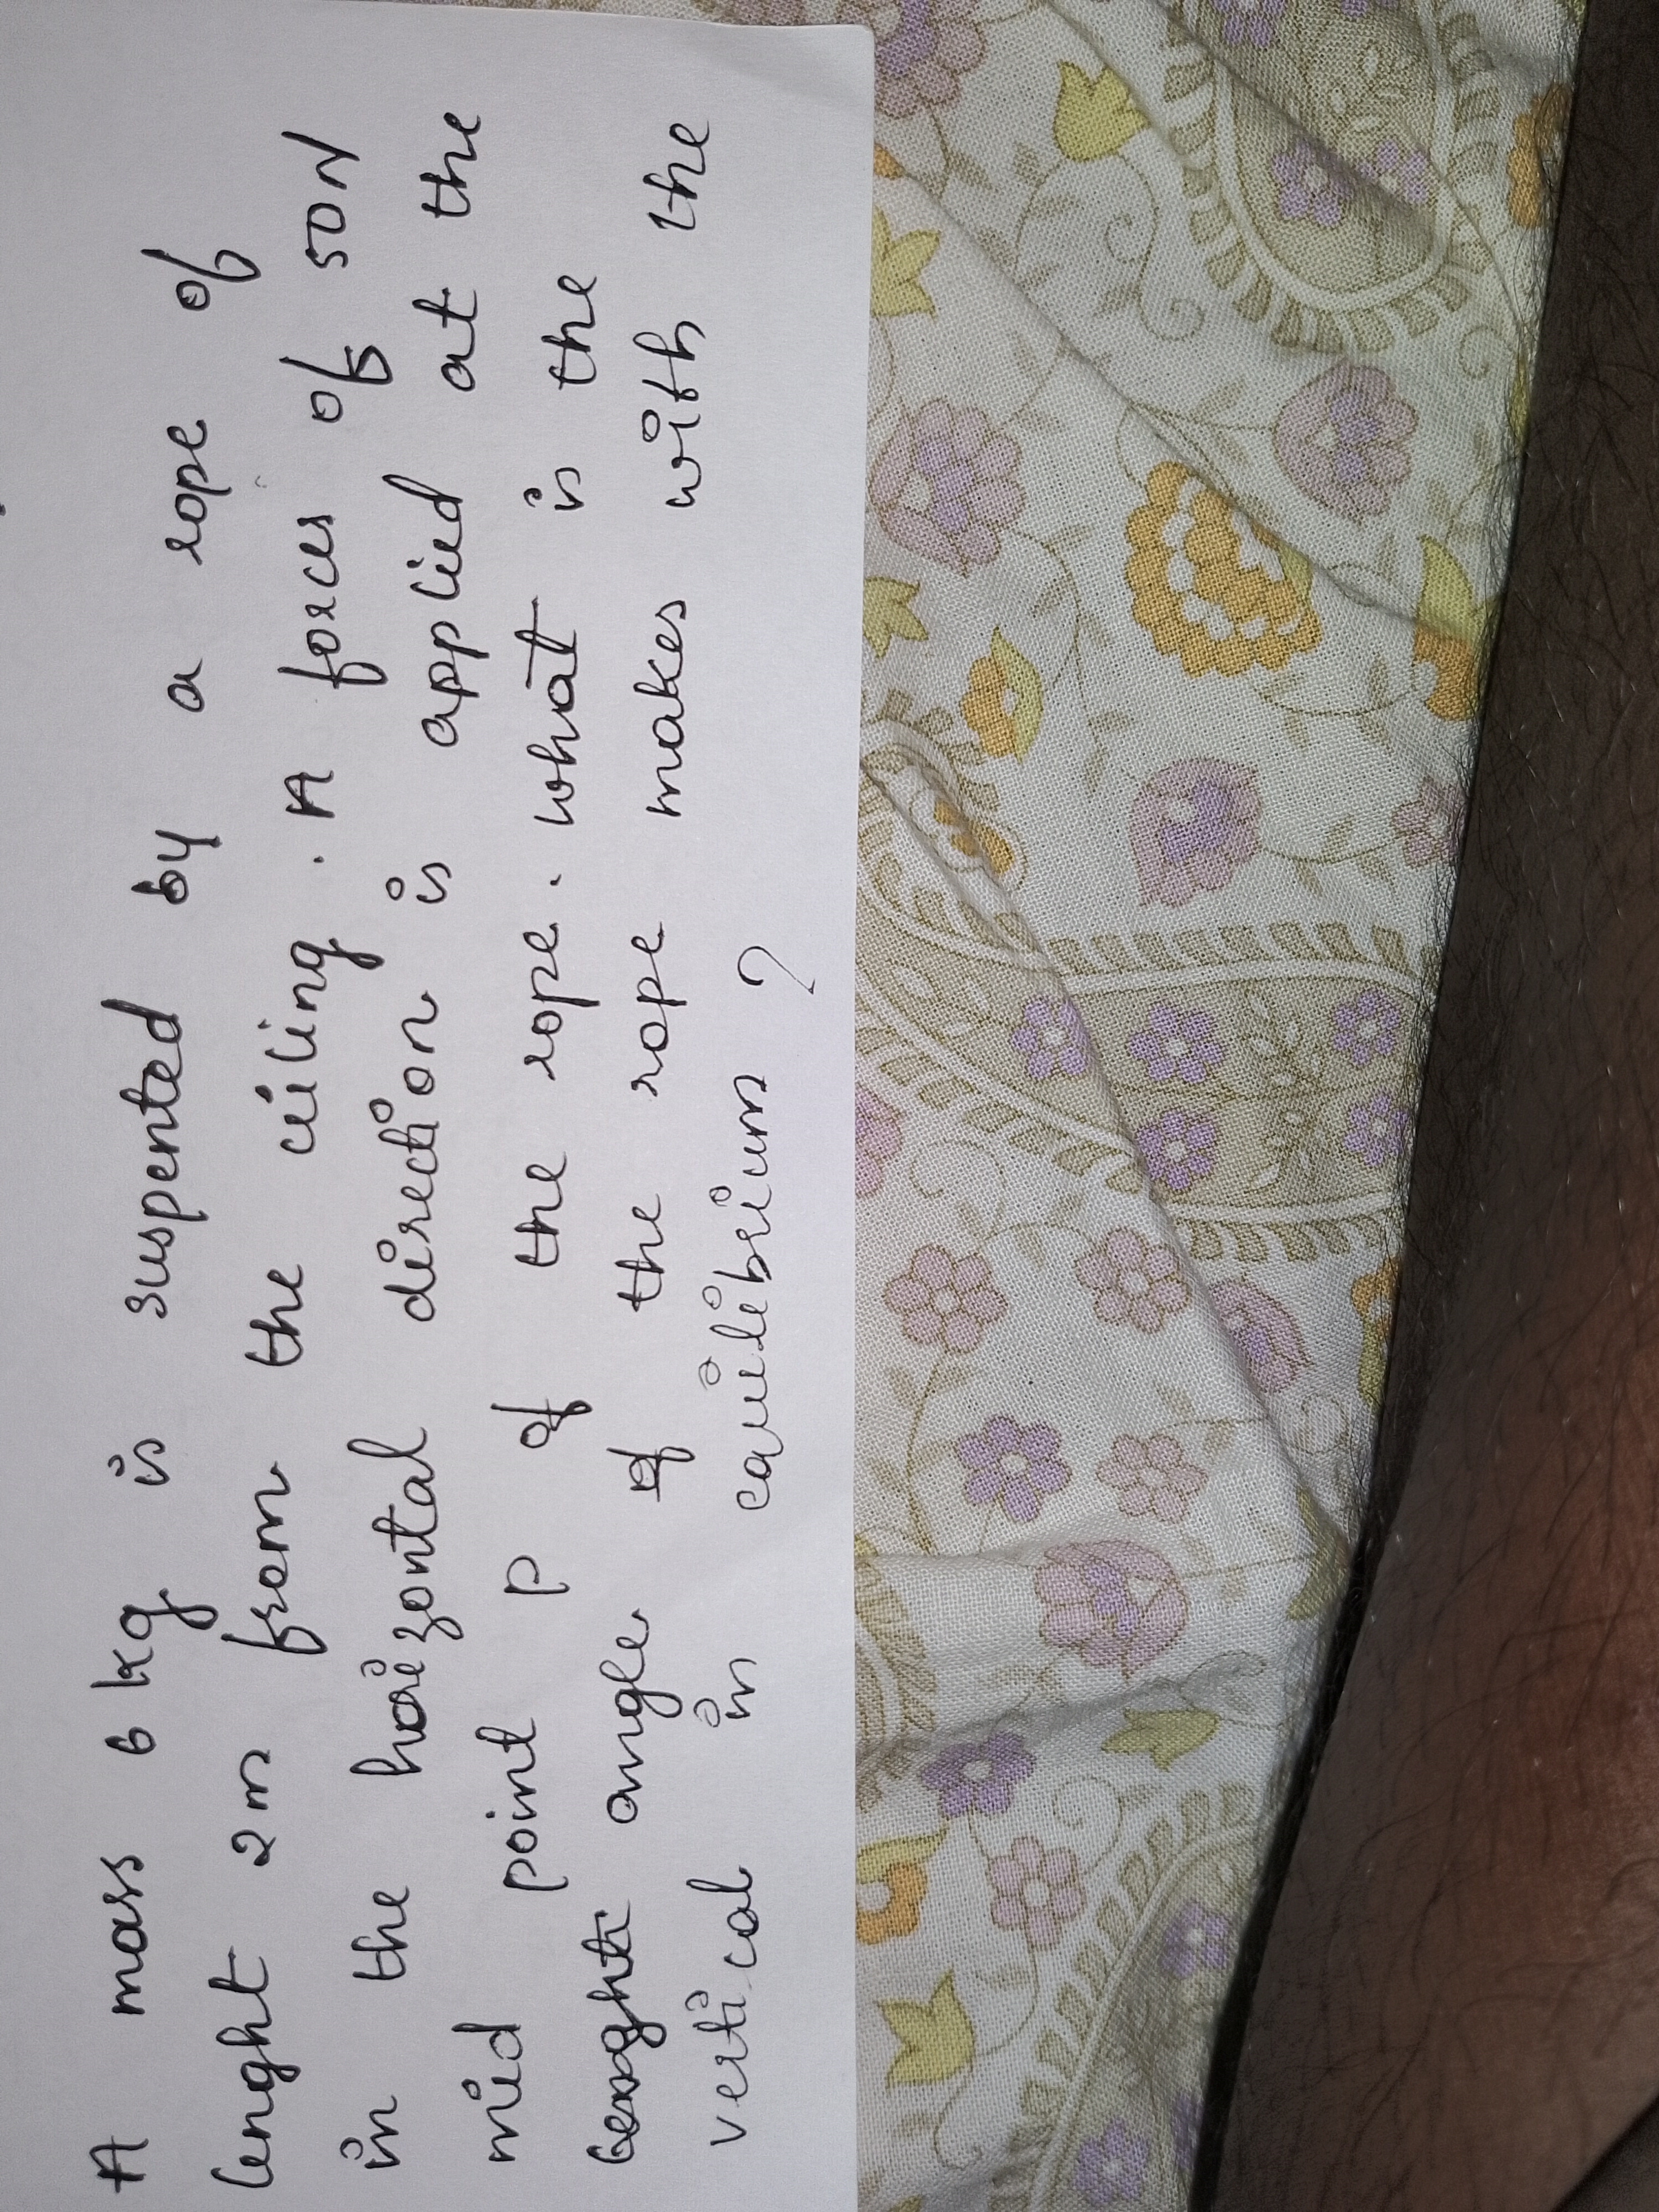 A mass 6 kg is suspented by a rope of
lenght 2m from the ceiling. A forces of 50N
in the horizontal direction is applied at the
mid point P of the rope. what is the
angle of the rope makes with the
vertical in equilibrium ?